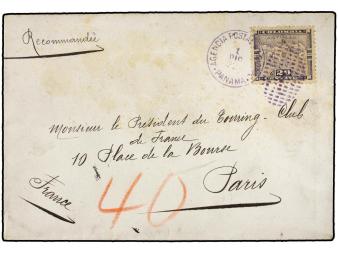 Recommandée
AGENCIA POSTAL
1
DIC
PANAMA
COLOMBIA
20
Monsieur le Président du Touring-Club
de France
10 Place de la Bourse
Paris
France
40